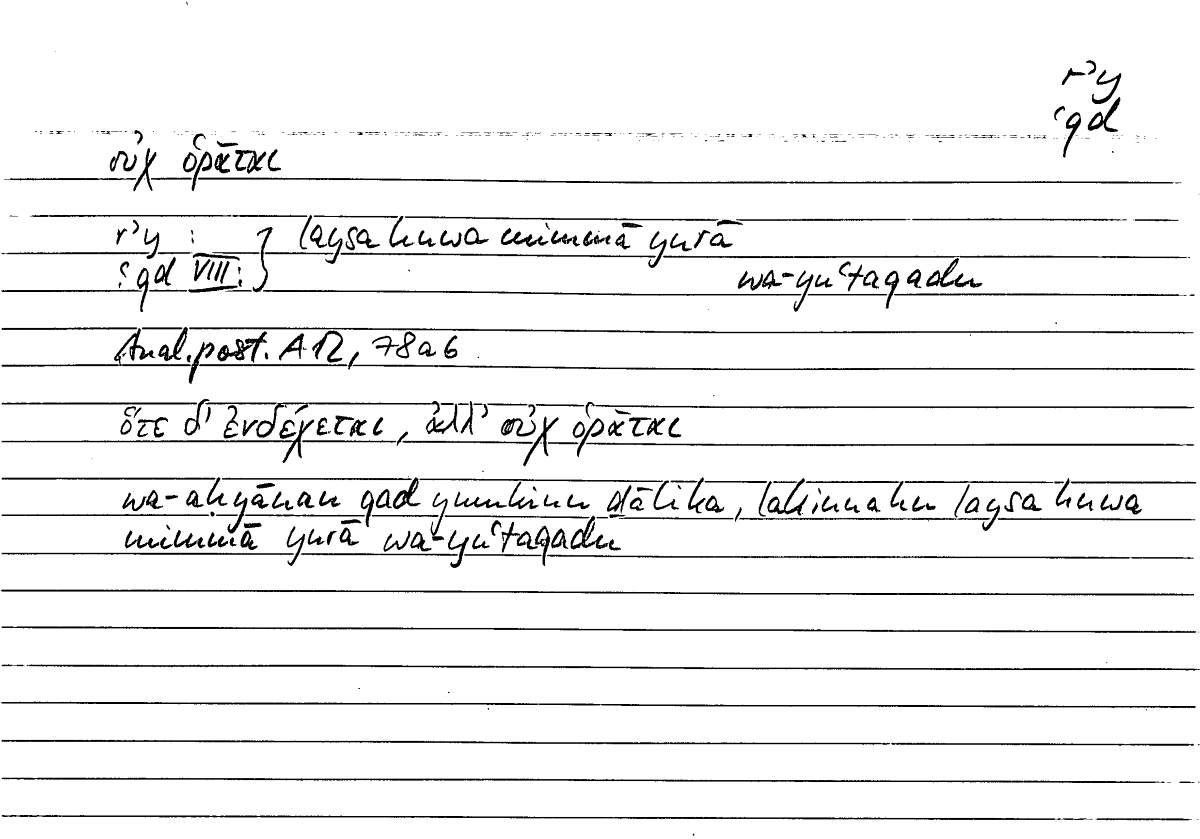 rʾy
ʿqd
οὐχ ὁρᾶται
rʾy : } laysa huwa mimmā yurā
ʿqd VIII: wa-yuʿtaqadu
Anal.post. A 12, 78a6
ὅτε δ' ἐνδέχεται, ἀλλ' οὐχ ὁρᾶται
wa-aḥyānan qad yumkinu ḏālika, lakinnahu laysa huwa
mimmā yurā wa-yuʿtaqadu